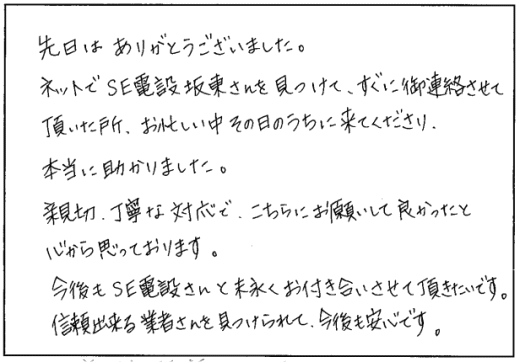 先日は ありがとうございました。
ネットで SE電設 坂東さんを見つけて、すぐに御連絡させて
頂いた所、お忙しい中 その日のうちに来てくださり、
本当に助かりました。
親切、丁寧な対応で、こちらにお願いして良かったと
心から思っております。
今後も SE電設さんと末永くお付き合いさせて頂きたいです。
信頼出来る業者さんを見つけられて、今後も安心です。